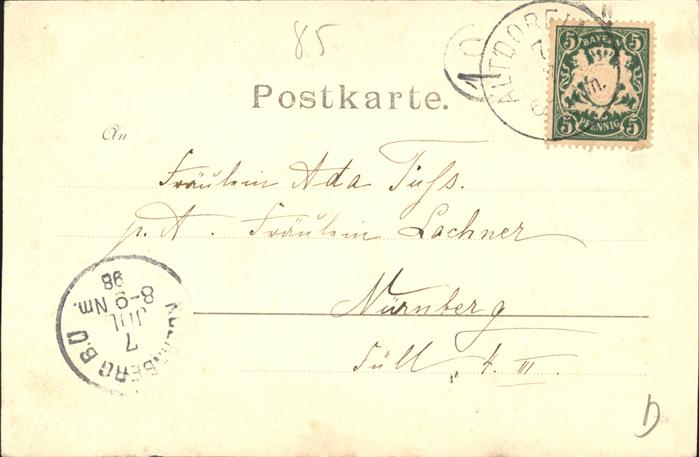 85
ALTDORF
7
5 BAYERN 5
5 PFENNIG 5
Postkarte.
An
Fräulein Ada
p. A. Fräulein Lochner
Nürnberg
Füll 4. III.
NUERNBERG B.O
7
JUL
8-9 Nm.
98
D